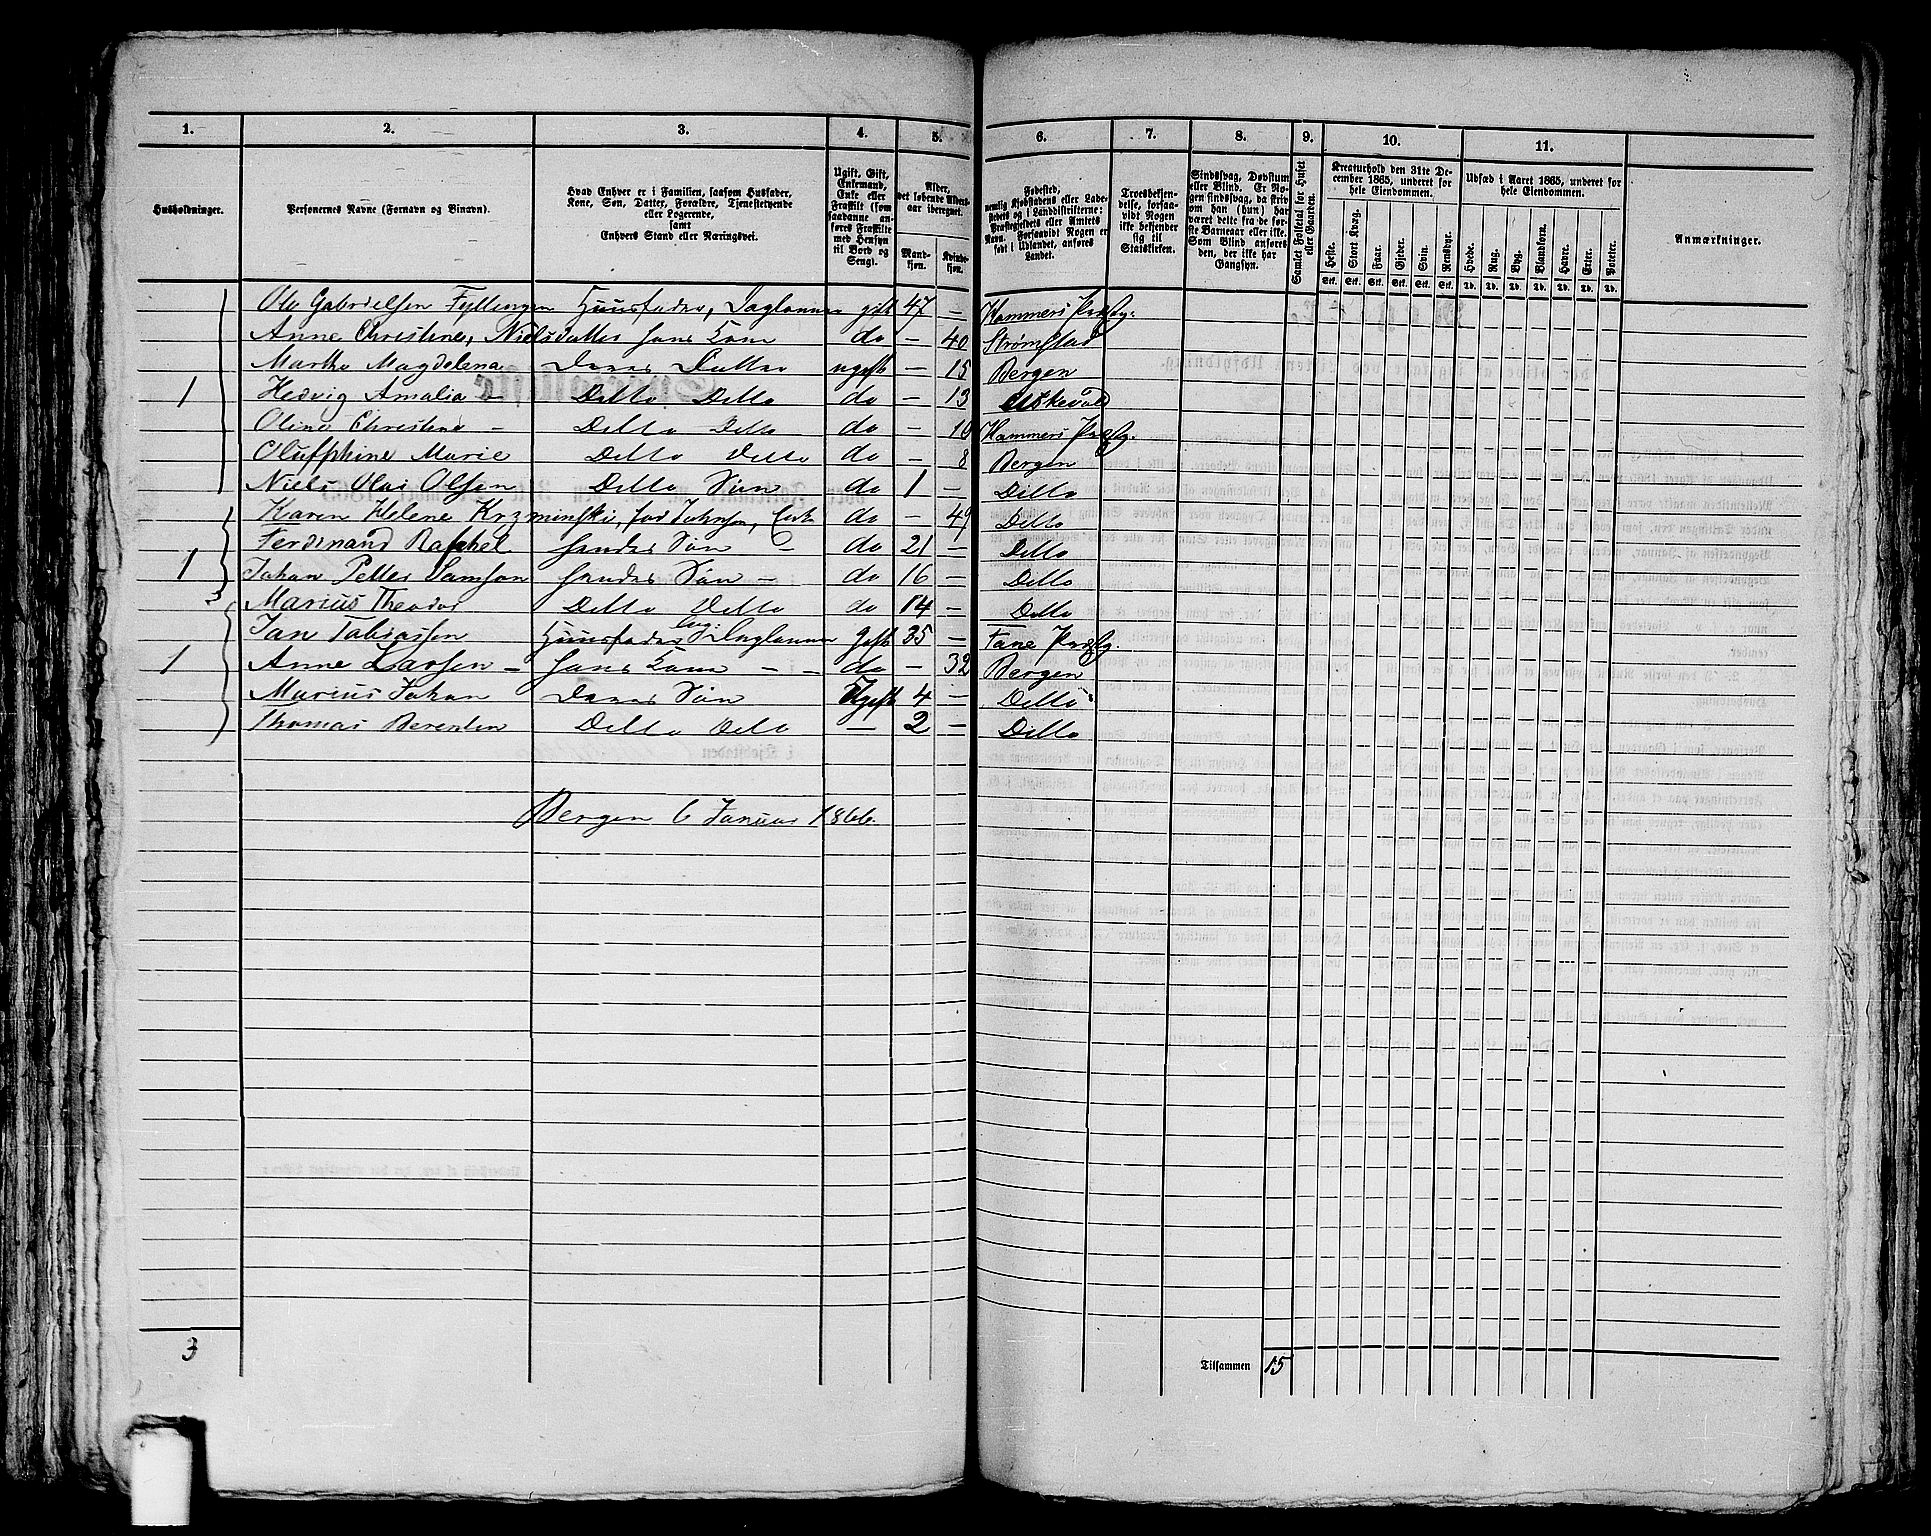 1. 2. 3. 4. 5. 6. 7. 8. 9. 10. 11.
Husholdninger.
Personernes Navne (Fornavn og Binavn).
Hvad Enhver er i Familien, saasom Husfader,
Kone, Søn, Datter, Forældre, Tjenestetyende
eller Logerende,
samt
Enhvers Stand eller Næringsvei.
Ugift, Gift,
Enkemand,
Enke eller
Fraskilt (som
saadanne an-
føres Fraskilte
med Hensyn
til Bord og
Seng).
Alder,
det løbende Alders-
aar iberegnet.
Mand-
kjøn.
Kvinde-
kjøn.
Fødested,
nemlig Kjøbstadens eller Lade-
stedets og i Landdistrikterne:
Præstegjeldets eller Amtets
Navn. Forsaavidt Nogen er
født i Udlandet, anføres
Landet.
Troesbekjen-
delse, forsaa-
vidt Nogen
ikke bekjender
sig til
Statskirken.
Sindssvag, Døvstum
eller Blind. Er No-
gen sindssvag, da skriv
om han (hun) har
været dette fra de før-
ste Barneaar eller ikke.
Som Blind anføres
den, der ikke har
Gangsyn.
Samlet Folketal for Huset
eller Gaarden.
Kreaturhold den 31te De-
cember 1865, underet for
hele Eiendommen.
Heste. Stort Kvæg. Faar. Gjeder. Svin. Rensdyr.
Stk. Stk. Stk. Stk. Stk. Stk.
Udsæd i Aaret 1865, underet for
hele Eiendommen.
Hvede. Rug. Byg. Blandkorn. Havre. Erter. Poteter.
Td. Td. Td. Td. Td. Td. Td.
Anmærkninger.
Ole Gabrielsen Fyllingen Huusfader, Daglønner gift 47 — Hammers Præstg:
Anne Christine, Nielsdatter hans Kone do — 40 Strømstad
Marthe Magdelena Deres Datter ugift — 15 Bergen
1 Hedvig Amalia — Ditto Ditto do — 13
Oline Christine — Ditto Ditto do — 10 Hammers Præstg.
Oluffphine Marie Ditto Ditto do — 8 Bergen
Niels Olai Olsen Ditto Søn do 1 — Ditto
Karen Helene Krzminski, fød Johnsen, Enk do — 49 Ditto
Ferdinand Raphel hendes Søn — do 21 — Ditto
1 Johan Petter Samson hendes Søn — do 16 — Ditto
Marius Theodor Ditto Ditto do 14 — Ditto
Jan Tobiassen Huusfader log: Daglønner Gift 35 — Fane Præstg.
1 Anne Larsen — hans Kone — — do — 32 Bergen
Marius Johan Deres Søn Ugift 4 — Ditto
Thomas Berenten Ditto Ditto — 2 — Ditto
Bergen 6 Januar 1866.
3
Tilsammen 15